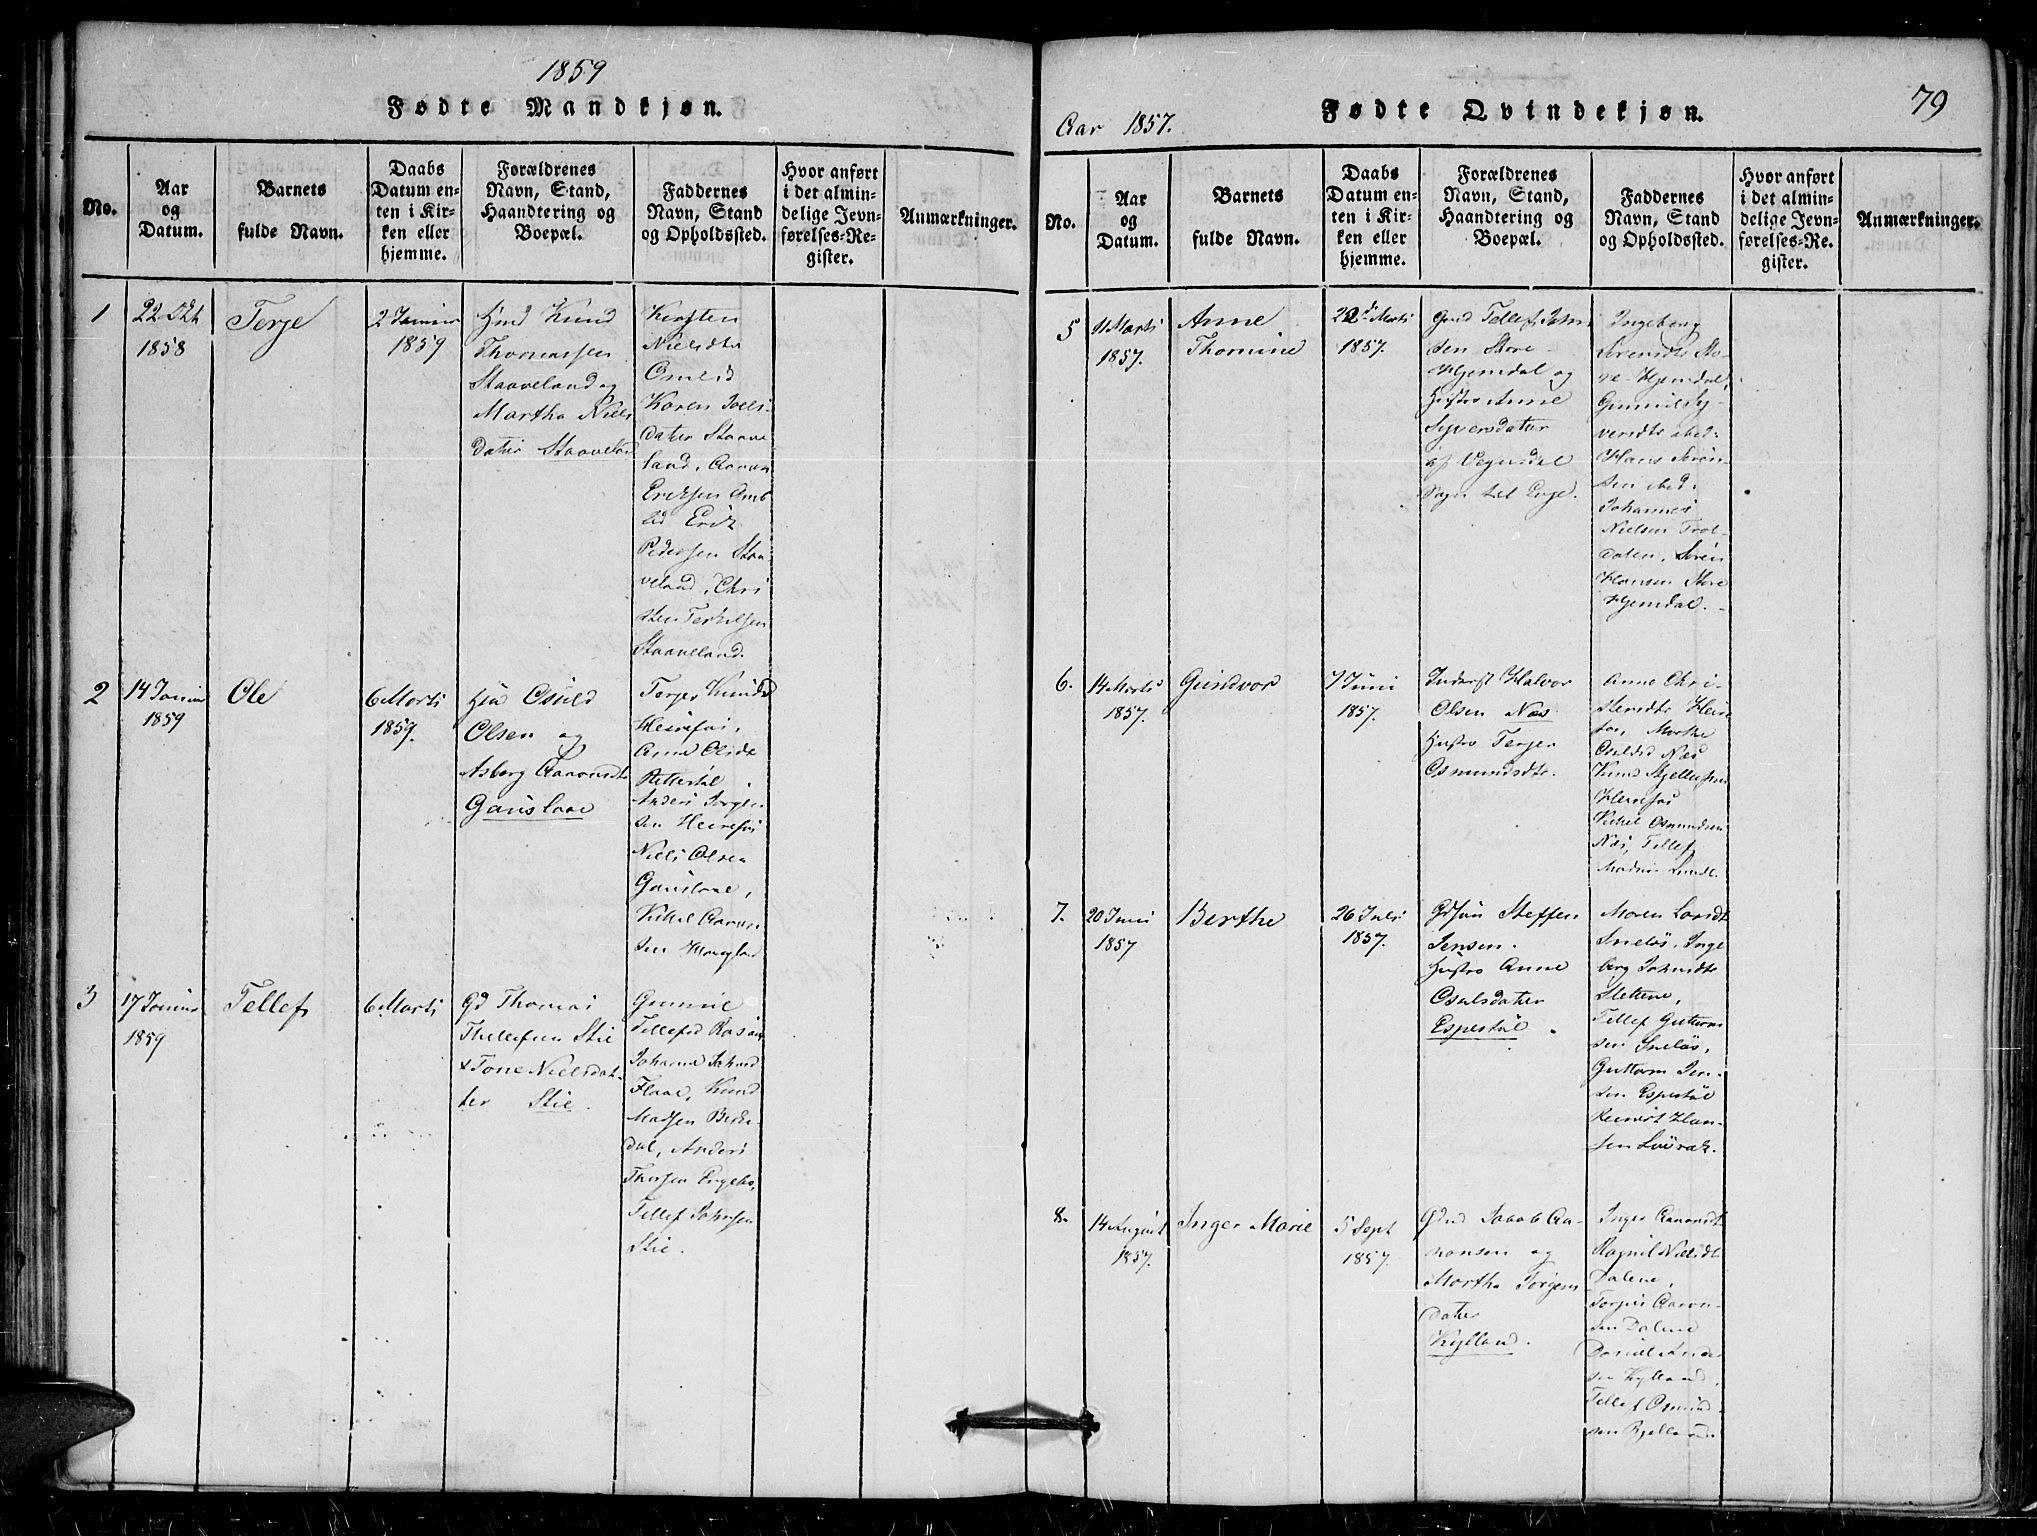 1859
Fødte Mandkjøn.
No.
Aar
og
Datum.
Barnets
fulde Navn.
Daabs
Datum en-
ten i Kir-
ken eller
hjemme.
Forældrenes
Navn, Stand,
Haandtering og
Boepæl.
Faddernes
Navn, Stand
og Opholdssted.
Hvor anført
i det almin-
delige Jevn-
førelses-Re-
gister.
Anmærkninger.
1
22 Okt
1858
Terje
2 Januar
1859
Knud
Thomassen
Staaveland og
Martha Niels
dater Staaveland
Kirsten
Nielsdtr
Omlid
Karen Joels-
dater Staave
land, Aanon
Eriksen Om
lid Erik
Pedersen Staa
veland, Chri
sten Terkelsen
Staaveland.
2
14 Januar
1859
Ole
6 Marti
1859.
Osuld
Olsen og
Asberg Aanonsdtr
Gauslaae
Terjer Knuds
Heirefos,
Anne Olsdtr
Rettestøl
Anders Jørgen
sen Heirefos
Niels Olsen
Gauslaae,
Kittel Aanon
sen
3
17 Januar
1859
Tellef
6 Marti
Gd Thomas
Thellefsen Stie
& Tone Nielsdat-
ter Stie.
Gunnil
Tellefsd
Johanne
Flaae, Knud
Madsen Birke-
dal, Anders
Thorsen Engebo,
Tellef Johnsen
Stie.
79
Aar 1857.
Fødte Qvindekjøn.
No.
Aar
og
Datum.
Barnets
fulde Navn.
Daabs
Datum en-
ten i Kir-
ken eller
hjemme.
Forældrenes
Navn, Stand,
Haandtering og
Boepæl.
Faddernes
Navn, Stand
og Opholdssted.
Hvor anført
i det almin-
delige Jevn-
førelses-Re-
gister.
Anmærkninger.
5
11 Marti
1857.
Anne
Thomine
22 Marti
1857.
Gmd Tellef John
sen Store
Hjemdal og
Hustro Anne
Syversdater
af Vegusdal
Sogn til Evje.
Ingeborg
Sørensdtr Sto-
re Hjemdal,
Gunnil Sy-
versdtr ibed:
Hans Søren-
sen ibed:
Johannes
Nielsen Trol-
dalen, Søren
Hansen Store
Hjemdal.
6.
14 Marts
1857.
Gundvor
7 Juni
1857.
Inderst Halvor
Olsen Næs
Hustro Terjer
Osmundsdtr.
Anne Chri-
stensdtr Heire
fos, Marthe
Osuldsd Næs
Knud Kjellufsen
Heirefos
Kittel Osmundsen
Næs, Tellef
7.
20 Juni
1857
Berthe
26 Juli
1857.
Steffen
Jensen.
Hustro Anne
Osulsdater
Espestøl
Maren
Sneløs, Inge
berg Johnsdtr
Slettene,
Tellef Guttorm
sen Sneløs,
Guttorm Jen-
sen Espestøl
Reinert Han-
sen Løvrak.
8.
14 August
1857.
Inger Marie
5 Sept
1857.
Jacob Aa-
nonsen og
Martha Jørgens
dater
Kylland.
Inger Aanonsdt
Ragnil Nielsdt
Dalene,
Torjus Aanon-
sen Dalene
Daniel Ander
sen Kylland,
Tellef Osmund
sen Kylland.